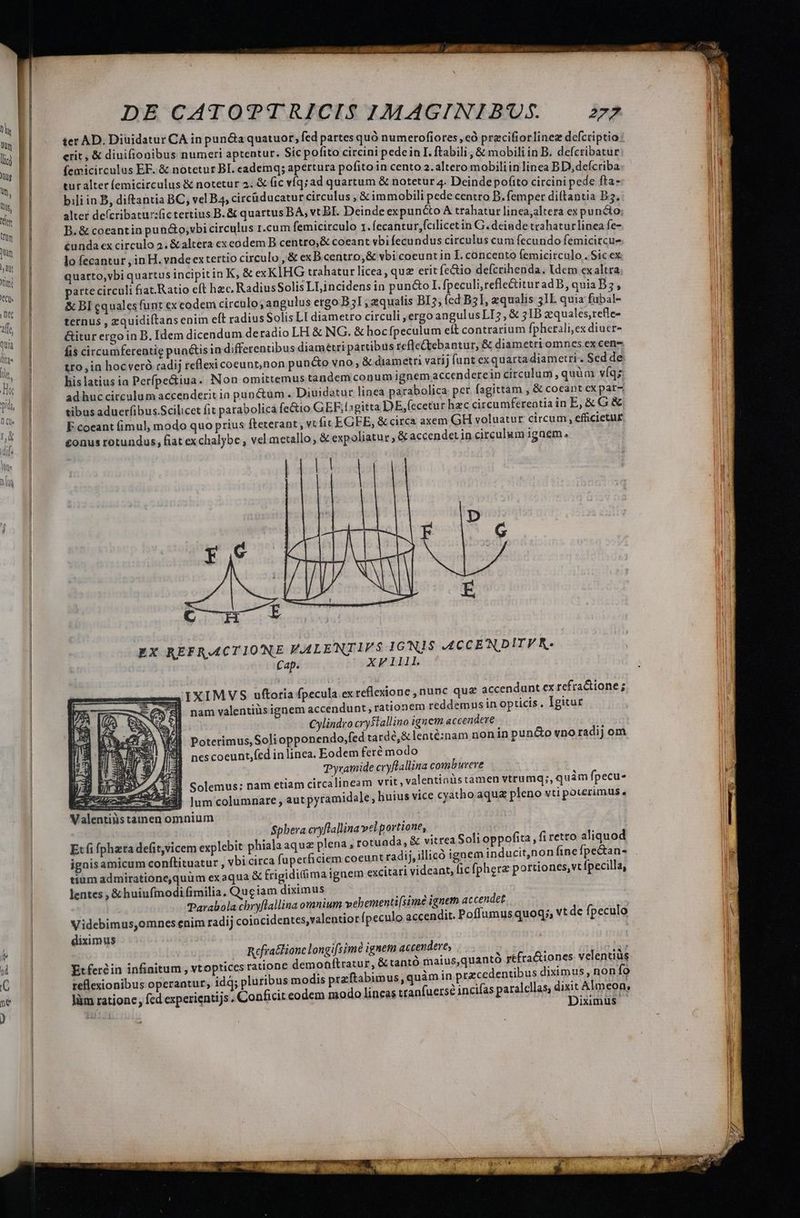 DE CATOPTRICIS IMAGINIBUS. 277
ter AD. Diuidatur CA in puncta quatuor, sed partes quò numerosiores, eò præcisior lineæ descriptio
erit, & diuisionibus numeri aptentur. Sic posito circini pede in I. stabili, & mobili in B. describatur
semicirculus EF. & notetur BI. eademq; apertura posito in cento 2. altero mobili in linea BD, describa-
tur alter semicirculus & notetur 2. & sic vsq; ad quartum & notetur 4. Deinde posito circini pede sta-
bili in B, distantia BC, vel B4, circūducatur circulus, & immobili pede centro B. semper distantia B3.
alter describatur: sic tertius B. & quartus BA, vt BI. Deinde ex puncto A trahatur linea, altera ex puncto
B. & coeant in puncto, vbi circulus 1. cum semicirculo 1. secantur, scilicet in G. deinde trahatur linea se-
cunda ex circulo 2. & altera ex eodem B centro, & coeant vbi secundus circulus cum secundo semicircu-
lo secantur, in H. vnde ex tertio circulo, & ex B centro, & vbi coeunt in I. concento semicirculo. Sic ex
quarto, vbi quartus incipit in K, & ex KIHG trahatur licea, quæ erit sectio describenda. Idem ex altra
parte circuli fiat. Ratio est hæc. Radius Solis LI, incidens in puncto I. speculi, reflectitur ad B, quia B3,
& BI equales sunt ex eodem circulo, angulus ergo B3I, æqualis BI3, sed B3I, æqualis 3IL quia subal-
ternus, æquidistans enim est radius Solis LI diametro circuli, ergo angulus LI3, & 3IB æquales, refle-
ctitur ergo in B. Idem dicendum de radio LH & NG. & hoc speculum est contrarium spherali, ex diuer-
sis circumferentię punctis in differentibus diametri partibus reflectebantur, & diametri omnes ex cen-
tro, in hoc verò radij reflexi coeunt, non puncto vno, & diametri varij sunt ex quarta diametri. Sed de
his latius in Perspectiua. Non omittemus tandem conum ignem accendere in circulum, quùm vsq;
ad huc circulum accenderit in punctum. Diuidatur linea parabolica per sagittam, & coeant ex par-
tibus aduersibus. Scilicet sit parabolica sectio GEF, sagitta DE, secetur hæc circumferentia in E, & G &
F coeant simul, modo quo prius steterant, vt sit EGFE, & circa axem GH voluatur circum, efficietur
conus rotundus, fiat ex chalybe, vel metallo, & expoliatur, & accendet in circulum ignem.
F G C H E F D G E
EX REFRACTIONE VALENTIVS IGNIS ACCENDITVR.
Cap. XVIIII.
DIXIMVS vstoria specula ex reflexione, nunc quæ accendunt ex refractione;
nam valentiùs ignem accendunt, rationem reddemus in opticis. Igitur
Cylindro crystallino ignem accendere
Poterimus, Soli opponendo, sed tardè, & lentè: nam non in puncto vno radij om
nes coeunt, sed in linea. Eodem ferè modo
Pyramide crystallina comburere
Solemus: nam etiam circa lineam vrit, valentiùs tamen vtrumq;, quàm specu-
lum columnare, aut pyramidale, huius vice cyatho aquæ pleno vti poterimus.
Valentiùs tamen omnium
Sphera crystallina vel portione,
Et si sphæra desit, vicem explebit phiala aquæ plena, rotunda, & vitrea Soli opposita, si retro aliquod
ignis amicum constituatur, vbi circa superficiem coeunt radij, illicò ignem inducit, non sine spectan-
tium admiratione, quùm ex aqua & frigidissima ignem excitari videant, sic spheræ portiones, vt specilla,
lentes, & huiusmodi similia. Quę iam diximus
Parabola chrystallina omnium vehementissimè ignem accendet
Videbimus, omnes enim radij coincidentes, valentior speculo accendit. Possumus quoq;, vt de speculo
diximus
Refractione longissimè ignem accendere,
Et ferè in infinitum, vt optices ratione demonstratur, & tantò maius, quantò refractiones velentiùs
reflexionibus operantur, idq; pluribus modis præstabimus, quàm in præcedentibus diximus, non so
lùm ratione, sed experientijs. Conficit eodem modo lineas transuersè incisas paralellas, dixit Almeon,
Diximus